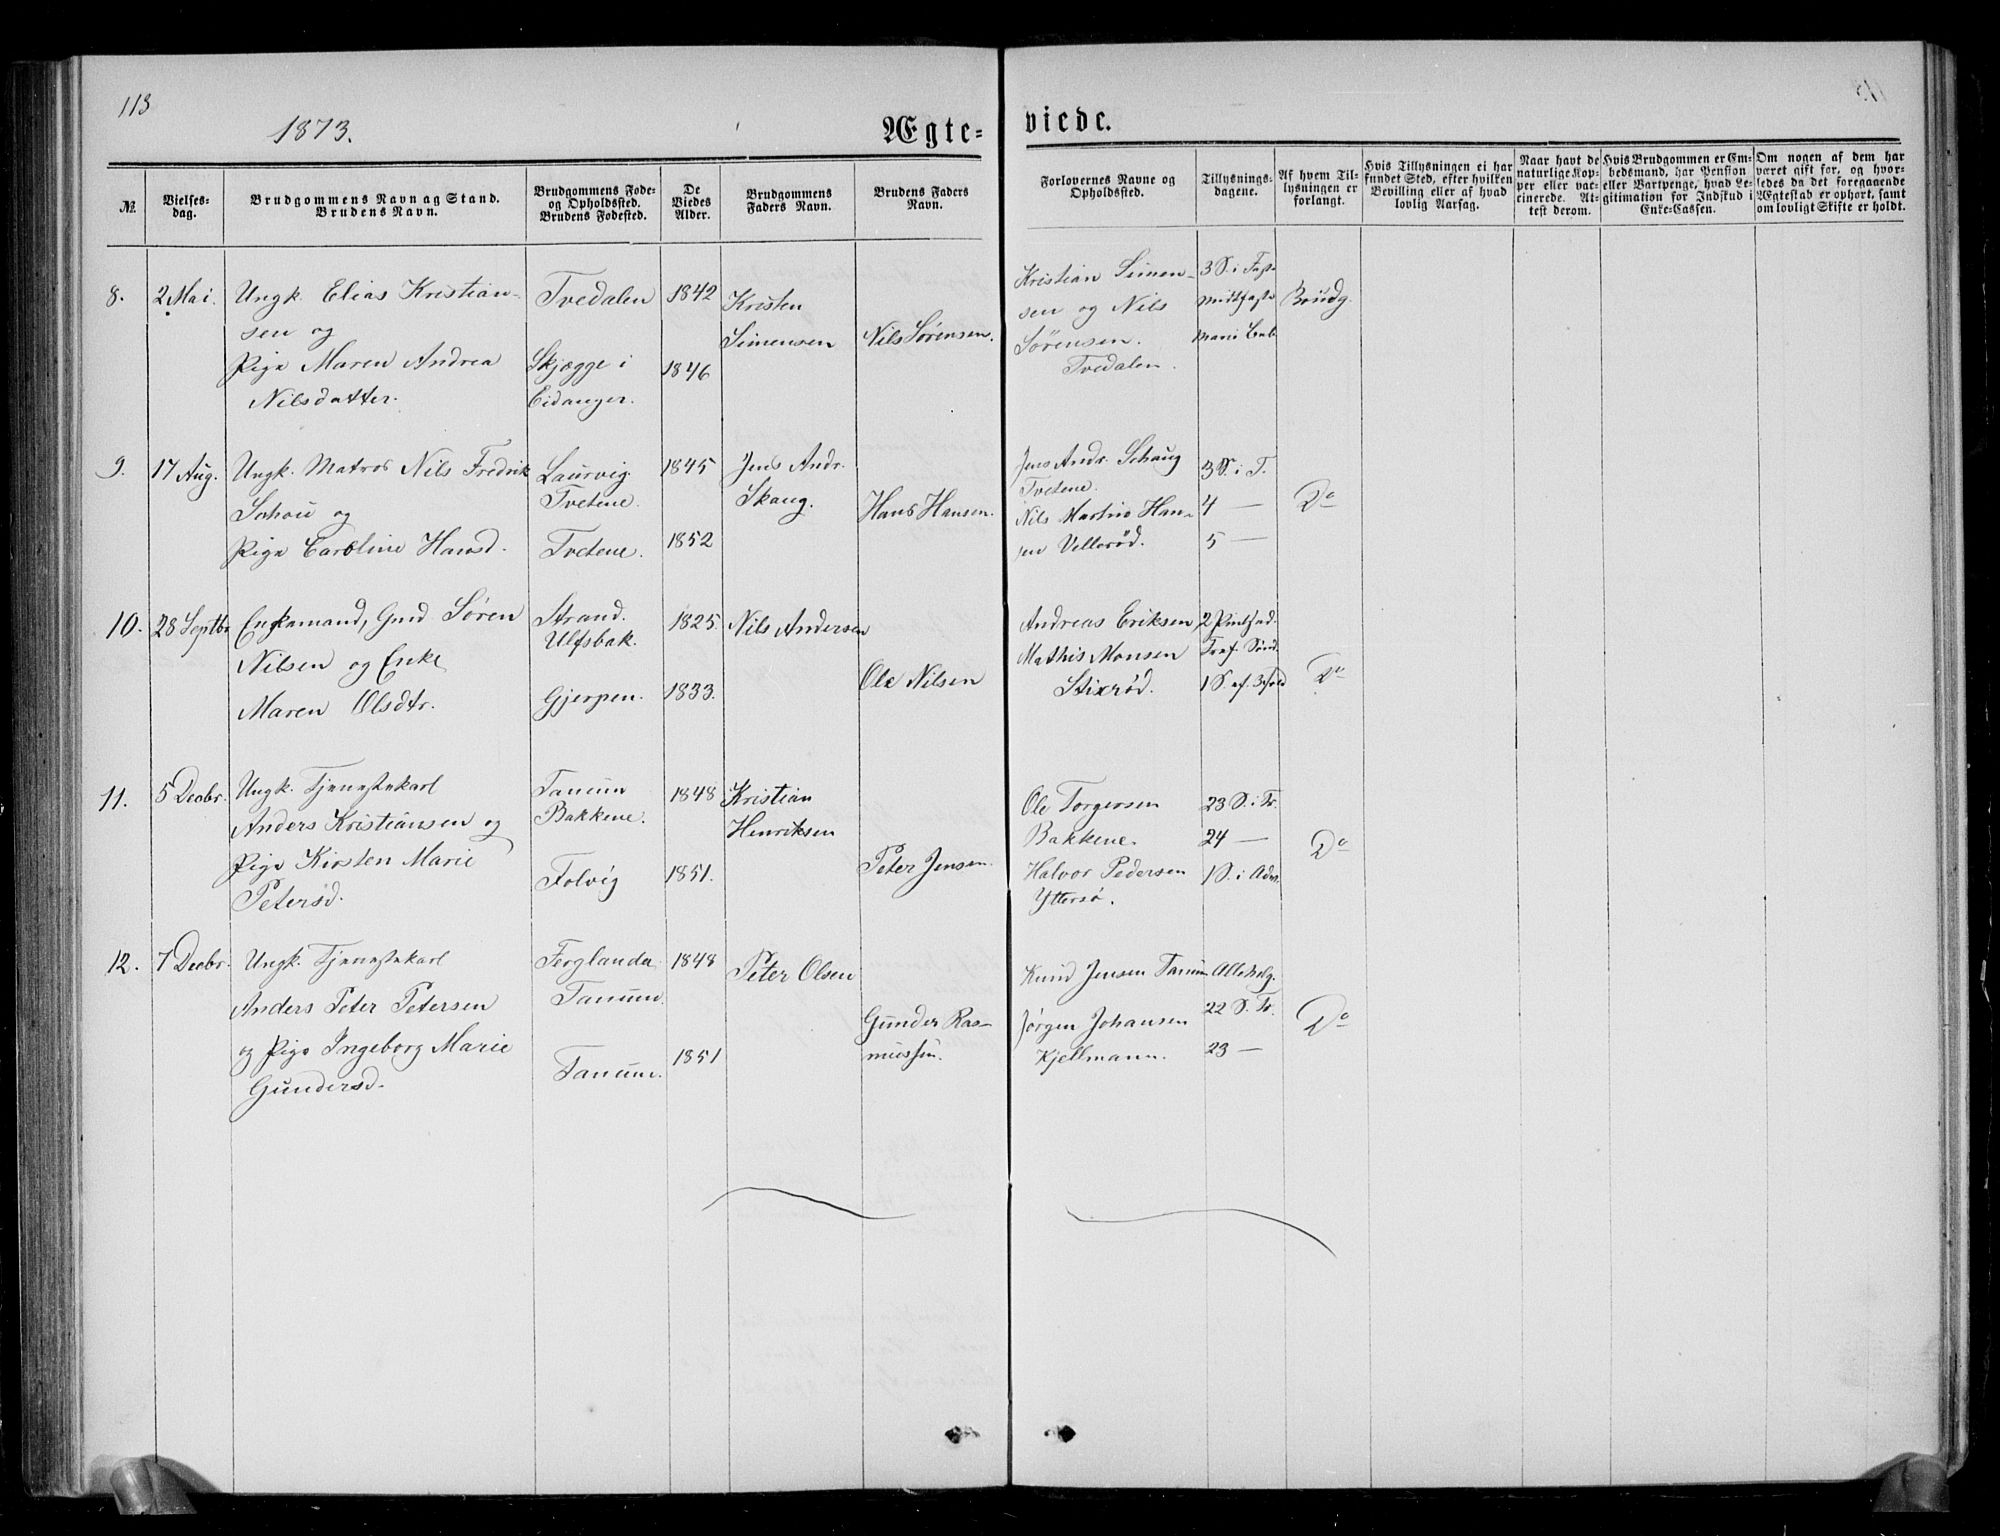 113
1873.
Ægte-
viede.
№
Vielses-
dag.
Brudgommens Navn og Stand.
Brudens Navn.
Brudgommens Føde-
og Opholdssted.
Brudens Fødested.
De
Viedes
Alder.
Brudgommens
Faders Navn.
Brudens Faders
Navn.
Forlovernes Navne og
Opholdssted.
Tillysnings-
dagene.
Af hvem Til-
lysningen er
forlangt.
Hvis Tillysningen ei har
fundet Sted, efter hvilken
Bevilling eller af hvad
lovlig Aarsag.
Naar havt de
naturlige Kop-
per eller vac-
cinerede. At-
test derom.
Hvis Brudgommen er Em-
bedsmand, har Pension
eller Vartpenge, hvad Le-
gitimation for Indskud i
Enke-Cassen.
Om nogen af dem har
været gift før, og hvor-
ledes da det foregaaende
Ægteskab er ophørt, samt
om lovligt Skifte er holdt.
8.
2 Mai.
Ungk. Elias Kristian-
sen og
Pige Maren Andrea
Nilsdatter.
Tvedalen
Skjægge i
Eidanger.
1842
1846
Kristen
Simensen
Nils Sørensen.
Kristian Simen-
sen og Nils
Sørensen.
Tvedalen.
3 S. i Faste
Midtfaste
Mariæ Beb
Brudg.
9.
17 Aug.
Ungk. Matros Nils Fredrik
Schou og
Pige Caroline Hansd.
Laurvig
Tvetene.
Tvetene.
1845
1852
Jens Andr.
Skaug.
Hans Hansen.
Jens Andr. Schaug
Tvetene.
Nils Martin Han-
sen Vellerød.
3 S. i T.
4 —
5 —
Do
10.
28 Septbr
Enkemand, Gmd Søren
Nilsen og Enke
Maren Olsdtr.
Strand.
Ulfsbak.
Gjerpen.
1825.
1833.
Nils Andersen
Ole Nilsen
Andreas Eriksen
Mathis Monsen
Stixrød.
2 Pintsed.
Tref. Sønd.
1 S. ef.
Do
11.
5 Decbr.
Ungk. Tjenestekarl
Anders Kristiansen og
Pige Kirsten Marie
Petersd.
Tanum
Bakkene.
Folvig
1848
1851.
Kristian
Henriksen
Peter Jensen.
Ole Torgersen
Bakkene.
Halvor Pedersen
Yttersø.
23 S. i Tr.
24 —
1 S. i Adv.
Do
12.
7 Decbr.
Ungk. Tjenestekarl
Anders Peter Petersen
og Pige Ingeborg Marie
Gundersd.
Tanum.
Tanum.
1848
1851
Peter Olsen
Gunder Ras-
mussen.
Knud Jensen Tanum
Jørgen Johansen
Kjellmann.
Allehelg.
22 S. Tr.
23 —
Do